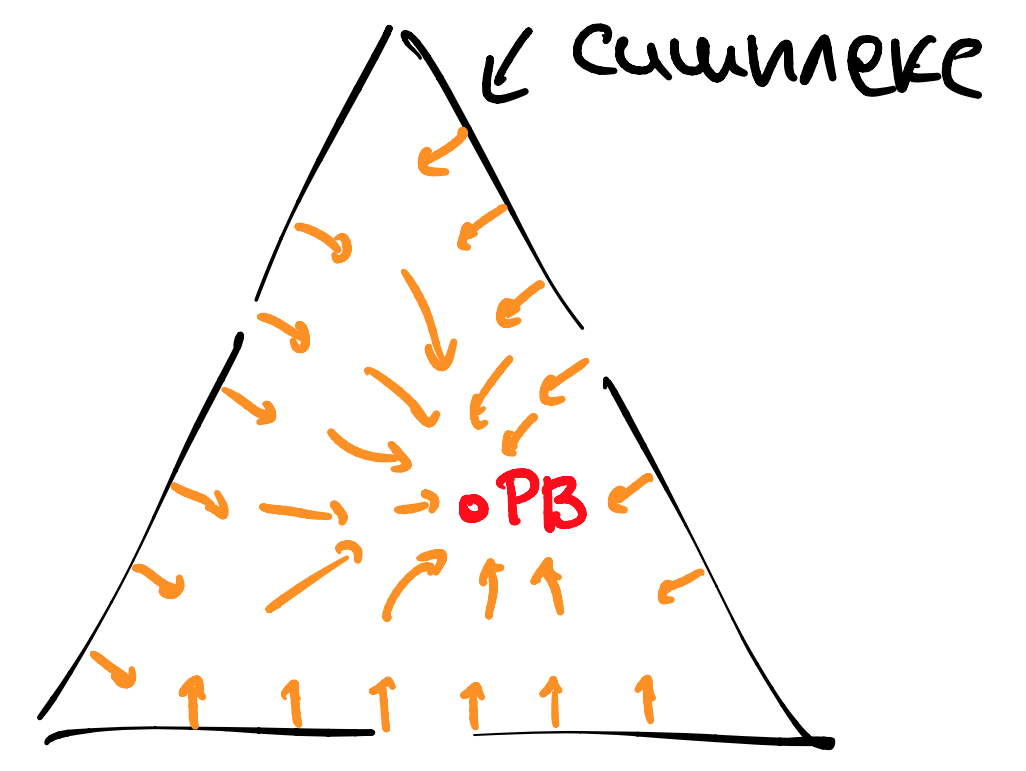 симплекс
РВ